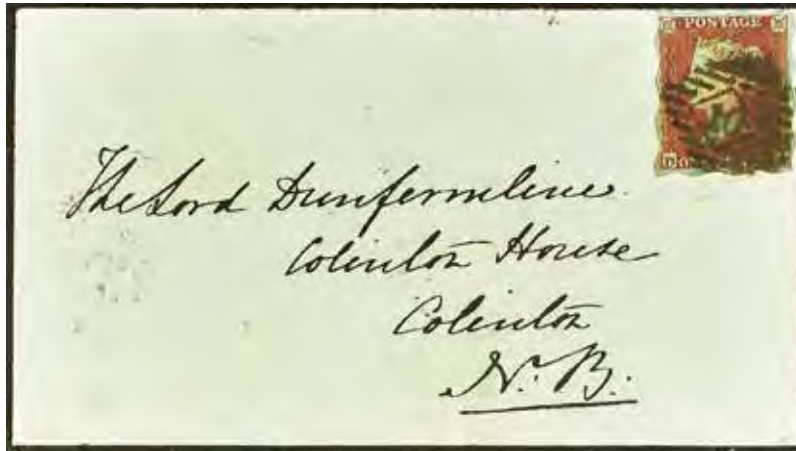 POSTAGE
The Lord Dunfermline
Colinton House
Colinton
N.B.